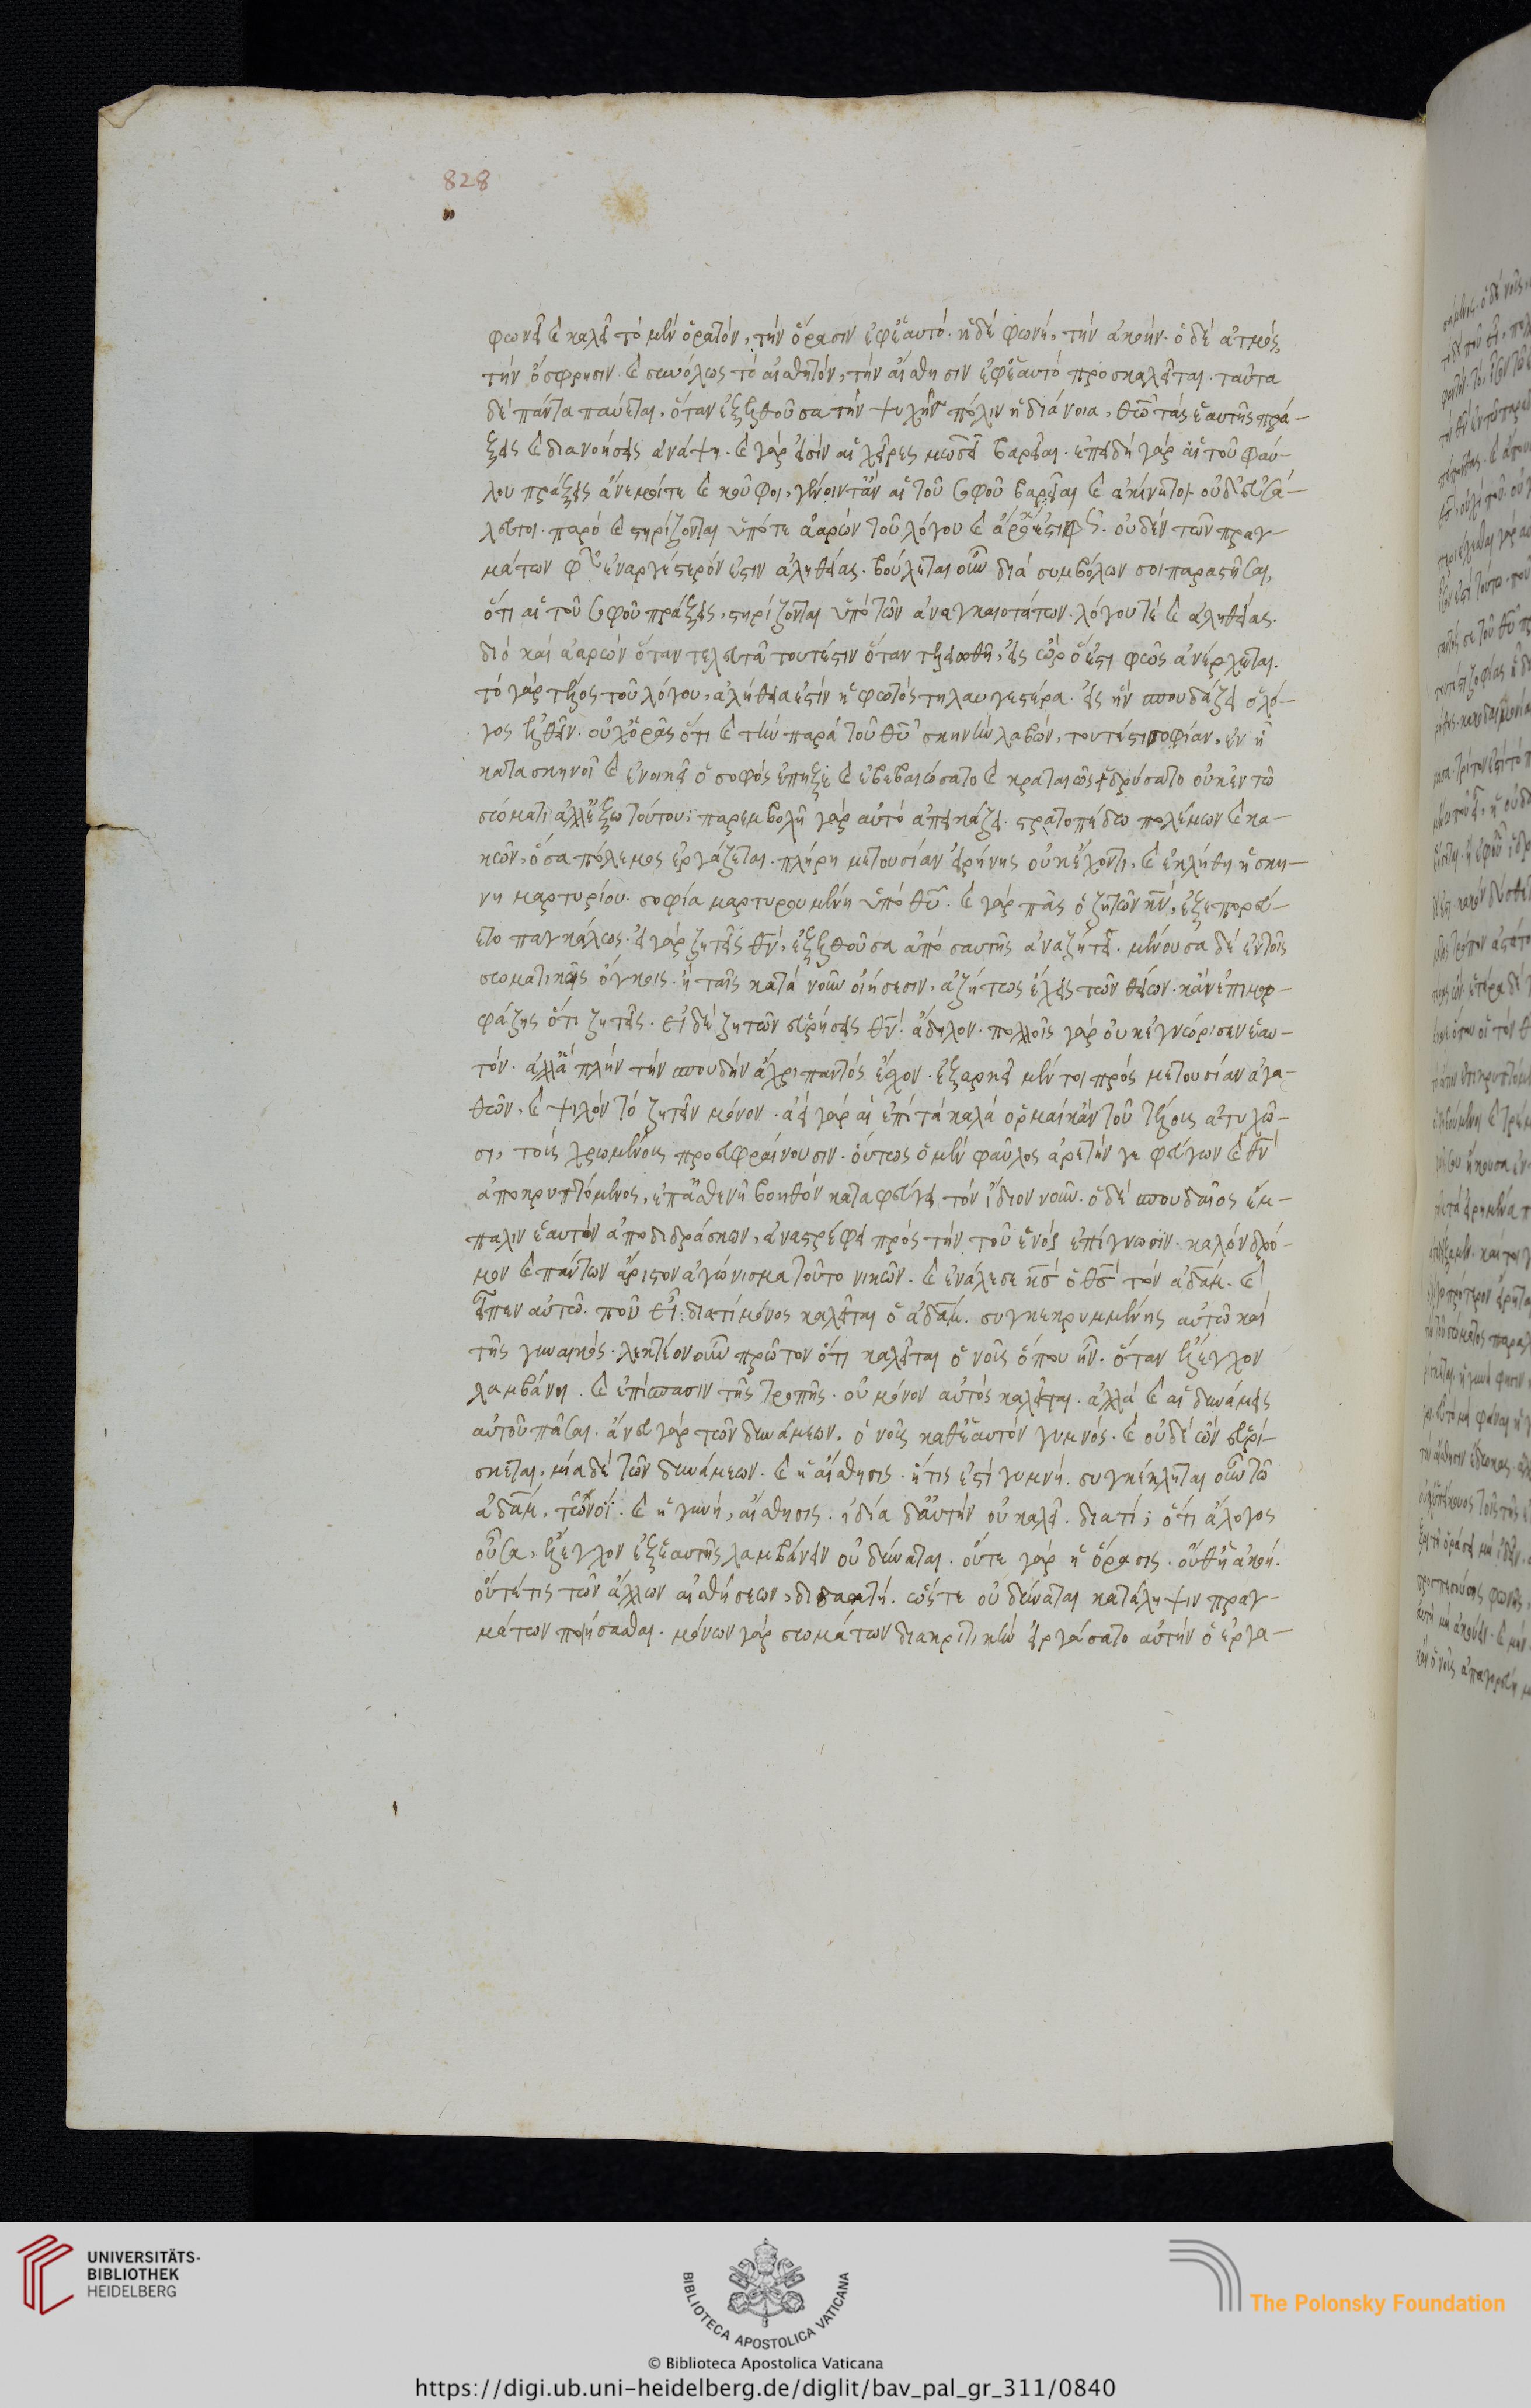 828
φωνεῖ καὶ καλεῖ τὸ μὲν ὁρατόν, τὴν ὅρασιν ἐφἑαυτό. ἡ δὲ φωνή, τὴν ἀκοήν. ὁ δὲ ἀτμός,
τὴν ὄσφρησιν. καὶ συνόλως τὸ αἰσθητόν, τὴν αἴσθησιν ἐφἑαυτὸ προσκαλεῖται. ταῦτα
δὲ πάντα παύεται, ὅταν ἐξελθοῦσα τὴν ψυχῆς πόλιν ἡ διάνοια, θω τὰς ἑαυτῆς πρά-
ξεις καὶ διανοήσεις ἀνάψη. καὶ γάρ εἰσιν αἱ χεῖρες μωσεῖ βαρεῖαι. ἐπειδὴ γὰρ αἱ τοῦ φαύ-
λου πράξεις ἀνεμοί τε καὶ κοῦφοι, γένοιντ' ἂν αἱ τοῦ σοφοῦ βαρεῖαι καὶ ἀκίνητοι οὐδ' εὐσά-
λευτοι. παρὸ καὶ στηρίζονται ὑπό τε ἀαρὼν τοῦ λόγου καὶ ὢρ ὅ ἐστι φῶς. οὐδὲν τῶν πραγ-
μάτων φωτὸς ἐναργέστερόν ἐστιν ἀληθείας. βούλεται οὖν διὰ συμβόλων σοι παραστῆσαι,
ὅτι αἱ τοῦ σοφοῦ πράξεις, στηρίζονται ὑπὸ τῶν ἀναγκαιοτάτων. λόγου τὲ καὶ ἀληθείας.
διὸ καὶ ἀαρὼν ὅταν τελευτᾶ τουτέστιν ὅταν τελειωθῆ, εἰς ὢρ ὅ ἐστι φῶς ἀνέρχεται.
τὸ γὰρ τέλος τοῦ λόγου, ἀλήθεια ἐστὶν ἡ φωτὸς τηλαυγεστέρα. εἰς ἣν σπουδάζει ὁ λό-
γος ἐλθεῖν. οὐχ ὁρᾶς ὅτι καὶ τὴν παρὰ τοῦ θυ σκηνὴν λαβών, τουτέστι σοφίαν, ἐν ἧ
κατασκηνοῖ καὶ ἐνοικεῖ ὁ σοφὸς ἔπηξε καὶ ἐβεβαιώσατο καὶ κραταιῶς ἱδρύσατο οὐκ ἐν τῶ
σώματι ἀλλ' ἔξω τούτου; παρεμβολῆ γὰρ αὐτὸ ἀπεικάζει. στρατοπέδω πολέμων καὶ κα-
κῶν, ὅσα πόλεμος ἐργάζεται. πλήρη μετουσίαν εἰρήνης οὐκ ἔχοντι. καὶ ἐκλήθη ἡ σκη-
νὴ μαρτυρίου. σοφία μαρτυρουμένη ὑπὸ θυ. καὶ γὰρ πᾶς ὁ ζητῶν κν, ἐξεπορεύ-
ετο παγκάλως. εἰ γὰρ ζητεῖς θν, ἐξελθοῦσα ἀπὸ σαυτῆς ἀναζήτει. μένουσα δὲ ἐν τοῖς
σωματικοῖς ὄγκοις. ἢ ταῖς κατὰ νοῦν οἰήσεσιν, ἀζήτως ἔχεις τῶν θείων. κἂν ἐπιμορ-
φάζης ὅτι ζητεῖς. εἰ δὲ ζητῶν εὑρήσεις θν. ἄδηλον. πολλοῖς γὰρ οὐκ ἐγνώρισεν ἑαυ-
τόν. ἀλλὰ πλὴν τὴν σπουδὴν ἄχρι παντὸς ἔσχον. ἐξαρκεῖ μέν τοι πρὸς μετουσίαν ἀγα-
θῶν, καὶ ψιλὸν τὸ ζητεῖν μόνον. ἀεὶ γὰρ αἱ ἐπὶ τὰ καλὰ ὁρμαὶ κἂν τοῦ τέλους ἀτυχῶ-
σι, τοὺς χρωμένους προευφραίνουσιν. οὕτως ὁ μὲν φαῦλος ἀρετήν γε φεύγων καὶ θν
ἀποκρυπτόμενος, ἐπ' ἀσθενῆ βοηθὸν καταφεύγει τὸν ἴδιον νοῦν. ὁ δὲ σπουδαῖος ἔμ-
παλιν ἑαυτὸν ἀποδιδράσκων, ἀναστρέφει πρὸς τὴν τοῦ ἑνὸς ἐπίγνωσιν. καλὸν δρό-
μον καὶ πάντων ἄριστον ἀγώνισμα τοῦτο νικῶν. καὶ ἐκάλεσε κς ὁ θς τὸν ἀδάμ. καὶ
εἶπεν αὐτῶ. ποῦ εἶ; διατί μόνος καλεῖται ὁ ἀδάμ. συγκεκρυμμένης αὐτῶ καὶ
τῆς γυναικός. λεκτέον οὖν πρῶτον ὅτι καλεῖται ὁ νοῦς ὅπου ἦν. ὅταν ἔλεγχον
λαμβάνη. καὶ ἐπίστασιν τῆς τροπῆς. οὐ μόνον αὐτὸς καλεῖται. ἀλλὰ καὶ αἱ δυνάμεις
αὐτοῦ πᾶσαι. ἄνευ γὰρ τῶν δυνάμεων, ὁ νοῦς καθ' ἑαυτὸν γυμνός. καὶ οὐδὲ ὢν εὑρί-
σκεται, μία δὲ τῶν δυνάμεων. καὶ ἡ αἴσθησις. ἥτις ἐστὶ γυμνή. συγκέκληται οὖν τῶ
ἀδάμ, τῶ νοΐ. καὶ ἡ γυνή, αἴσθησις. ἰδία δ' αὐτὴν οὐ καλεῖ. διατί; ὅτι ἄλογος
οὖσα, ἔλεγχον ἐξ ἑαυτῆς λαμβάνειν οὐ δύναται. οὔτε γὰρ ἡ ὅρασις. οὔθ' ἡ ἀκοή.
οὔτέ τις τῶν ἄλλων αἰσθήσεων, διδακτή. ὥστε οὐ δύναται κατάληψιν πραγ-
μάτων ποιήσασθαι. μόνων γὰρ σωμάτων διακριτικὴν εἰργάσατο αὐτὴν ὁ ἐργα-
UNIVERSITÄTS-
BIBLIOTHEK
HEIDELBERG
BIBLIOTECA APOSTOLICA VATICANA
The Polonsky Foundation
© Biblioteca Apostolica Vaticana
https://digi.ub.uni-heidelberg.de/diglit/bav_pal_gr_311/0840